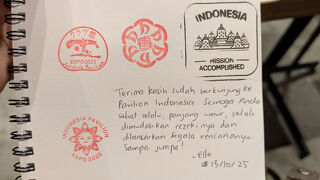 クラゲ館
EXPO2025
INDONESIA
MISSION
ACCOMPLISHED
Terima kasih sudah berkunjung ke
Pavilion Indonesia. Semoga Anda
sehat selalu, panjang umur, selalu
dimudahkan rezekinya dan
dilancarkan segala rencananya.
Sampai jumpa!
- Ella
15/10/25
INDONESIA PAVILION
EXPO2025